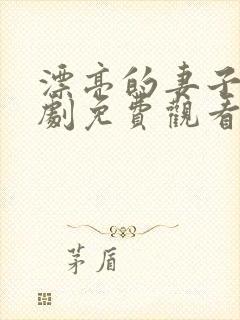 漂亮的妻子
劇免費觀看
茅盾